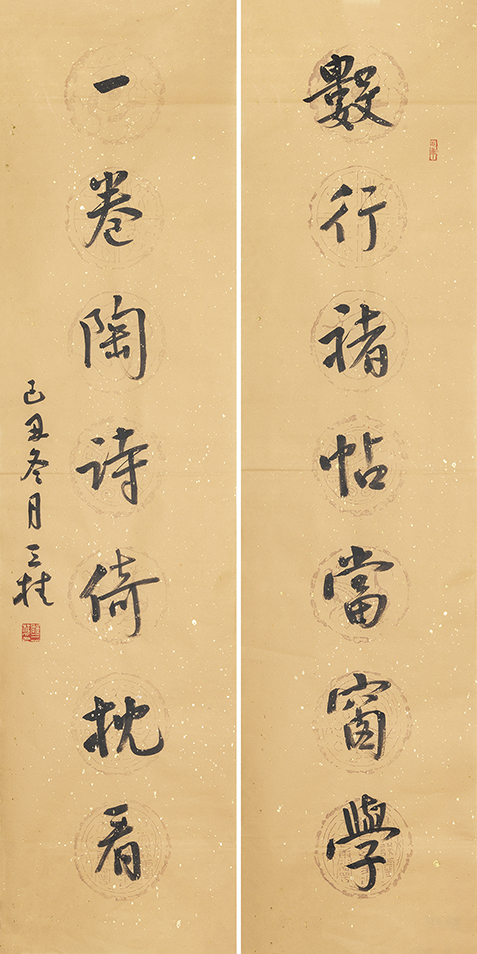 數行褚帖當窗學
一卷陶詩倚枕看
己丑冬月三桂